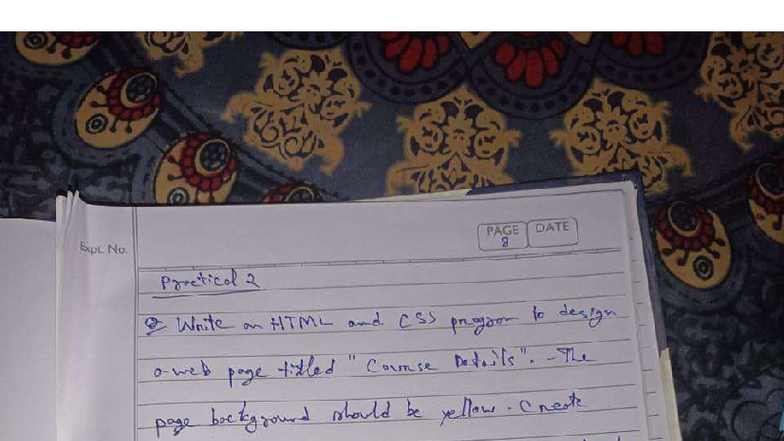 Expt. No.
PAGE DATE
8
Practical 2
Q Write an HTML and CSS program to design
a web page titled "Course Details". The
page background should be yellow. Create